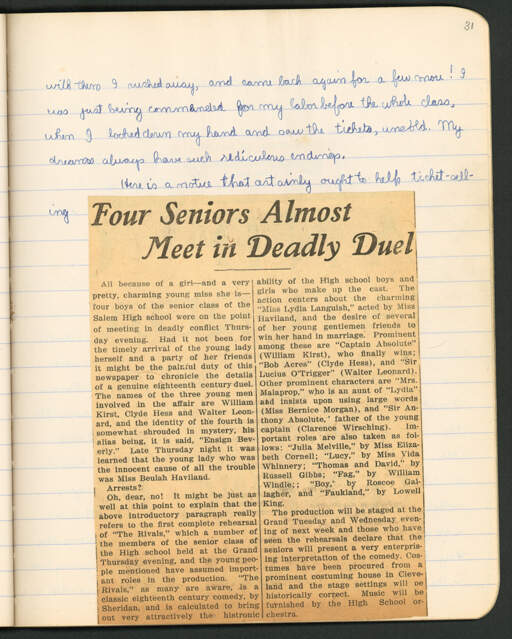 31
with them I rushed away, and came back again for a few more! I
was just being commended for my labor before the whole class,
when I looked down my hand and saw the tickets, unsold. My
dreams always have such ridiculous endings.
Here is a notice that certainly ought to help ticket-sell-
ing
Four Seniors Almost
Meet in Deadly Duel
All because of a girl—and a very
pretty, charming young miss she is—
four boys of the senior class of the
Salem High school were on the point
of meeting in deadly conflict Thurs-
day evening. Had it not been for
the timely arrival of the young lady
herself and a party of her friends
it might be the painful duty of this
newspaper to chronicle the details
of a genuine eighteenth century duel.
The names of the three young men
involved in the affair are William
Kirst, Clyde Hess and Walter Leon-
ard, and the identity of the fourth is
somewhat shrouded in mystery, his
alias being, it is said, "Ensign Bev-
erly." Late Thursday night it was
learned that the young lady who was
the innocent cause of all the trouble
was Miss Beulah Haviland.
Arrests?
Oh, dear, no! It might be just as
well at this point to explain that the
above introductory paragraph really
refers to the first complete rehearsal
of "The Rivals," which a number of
the members of the senior class of
the High school held at the Grand
Thursday evening, and the young peo-
ple mentioned have assumed import-
ant roles in the production. "The
Rivals," as many are aware, is a
classic eighteenth century comedy, by
Sheridan, and is calculated to bring
out very attractively the histronic
ability of the High school boys and
girls who make up the cast. The
action centers about the charming
"Miss Lydia Languish," acted by Miss
Haviland, and the desire of several
of her young gentlemen friends to
win her hand in marriage. Prominent
among these are "Captain Absolute"
(William Kirst), who finally wins;
"Bob Acres" (Clyde Hess), and "Sir
Lucius O'Trigger" (Walter Leonard).
Other prominent characters are "Mrs.
Malaprop," who is an aunt of "Lydia"
and insists upon using large words
(Miss Bernice Morgan), and "Sir An-
thony Absolute,' father of the young
captain (Clarence Wirsching). Im-
portant roles are also taken as fol-
lows: "Julia Melville," by Miss Eliza-
beth Cornell; "Lucy," by Miss Vida
Whinnery; "Thomas and David," by
Russell Gibbs; "Fag," by William
Windle;; "Boy,' by Roscoe Gal-
lagher, and "Faukland," by Lowell
King.
The production will be staged at the
Grand Tuesday and Wednesday even-
ing of next week and those who have
seen the rehearsals declare that the
seniors will present a very enterpris-
ing interpretation of the comedy. Cos-
tumes have been procured from a
prominent costuming house in Cleve-
land and the stage settings will be
historically correct. Music will be
furnished by the High School or-
chestra.